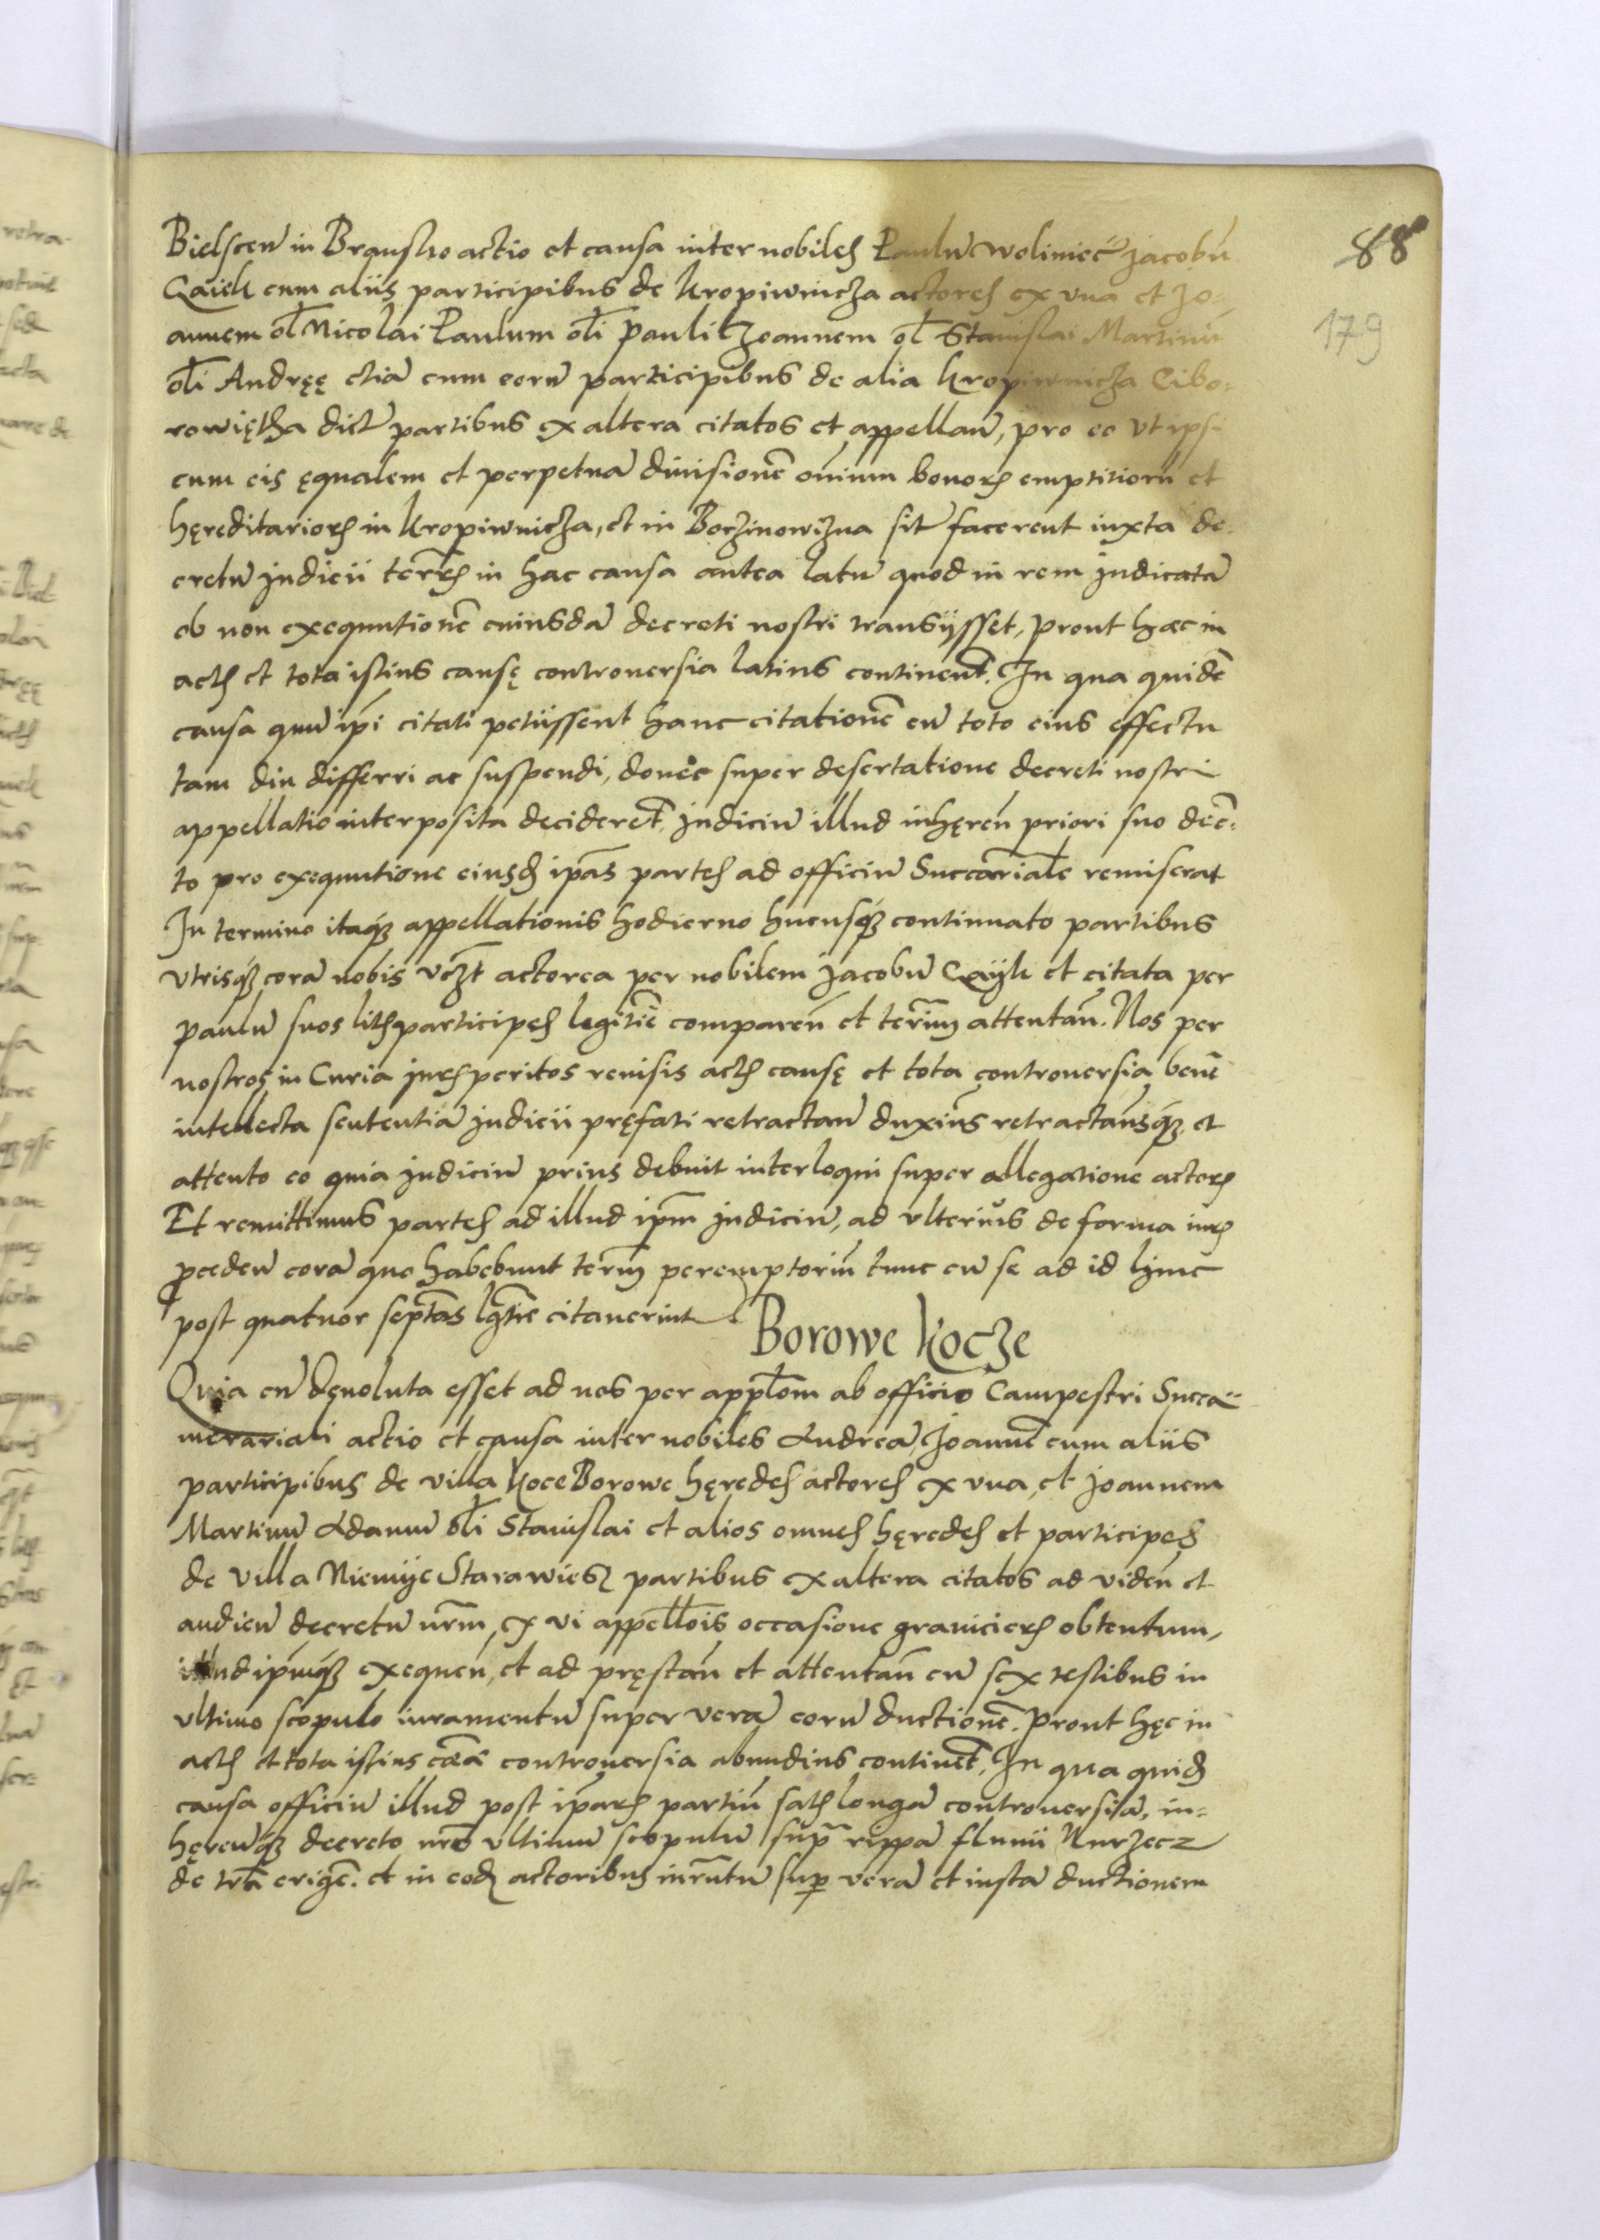 Bielscen̄ in Bransko actio et causa inter nobiles Paulū Woliniec Jacobū
88
Gaiek cum aliis participibus de Kropiwnicza actores ex vna et Jo-
annem ol̄ Nicolai Paulum oli Pauli Joannem ol̄ Stanislai Martinū
179
oli Andręę etiā cum eorū participibus de alia Kropiwnicza Cibo-
rowiętha dict partibus ex altera citatos et appellan̄, pro eo vt ipsi
cum eis ęqualem et perpetuā diuisionē omnium bonorꝫ emptitiorū et
hęreditariorꝫ in Kropiwnicza, et in Boczinowizna sit facerent iuxta de-
cretū Judicii terrꝫ in hac causa antea latū quod in rem judicatā
ob non exequutionē cuiusdā decreti nostri transiisset, Prout hæc in
actis et tota istius causę controuersia latius continent. In qua quidē
causa quū ipi citati petiissent hanc citationē cū toto eius effectu
tam diu differri ac suspendi, donec super desertatione decreti nostri
appellatio interposita decideret, Judiciū illud inhęren̄ priori suo decre-
to pro exequutione eiusd ipas partes ad officiū Succāriale remiserat
In termino itaqꝫ appellationis hodierno hucusqꝫ continuato partibus
vtrisqꝫ corā nobis vczt actorea per nobilem Jacobū Gayk et citata per
Paulū suos litis participes legitimē comparen̄ et termin attentan̄. Nos per
nostros in Curia juris peritos reuisis actis causę et tota controuersia benē
intellecta sententiā judicii pręfati retractan̄ duximus retractamusqꝫ et
attento eo quia judiciū prius debuit interloqui super allegatione actorꝫ
Et remittimus partes ad illud ipm judiciū, ad vlterius de forma iuris
proceden̄ corā quo habebunt termin peremptoriū tunc cū se ad id hinc
post quatuor septas lgtime citauerint
Borowe Kocze
Quia cū deuoluta esset ad nos per applom ab officio Campestri Succa-
merariali actio et causa inter nobiles Andreā, Joannē cum aliis
participibus de villa Koce Borowe hęredes actores ex vna, et Joannem
Martinū Adamū oli Stanislai et alios omnes hęredes et participes
de Villa Niemyie Starawies partibus ex altera citatos ad viden̄ et
audien̄ decretū nrm, ex vi appellois occasione granicierꝫ obtentum,
illud ipmqꝫ exequen, et ad pręstan̄ et attentan̄ cū sex testibus in
vltimo scopulo iuramentū super verā eorū ductionē. Prout hęc in
actis et tota istius cāē controuersia abundius continet, In qua quid
causa officiū illud post iparꝫ partiū satis longā controuersiā, in-
hęrenqꝫ decreto nro vltimū scopulū supr rippā fluuii Nurzecz
de trā erigē. et in eod actoribus iurmtū sup verā et iustā ductionem